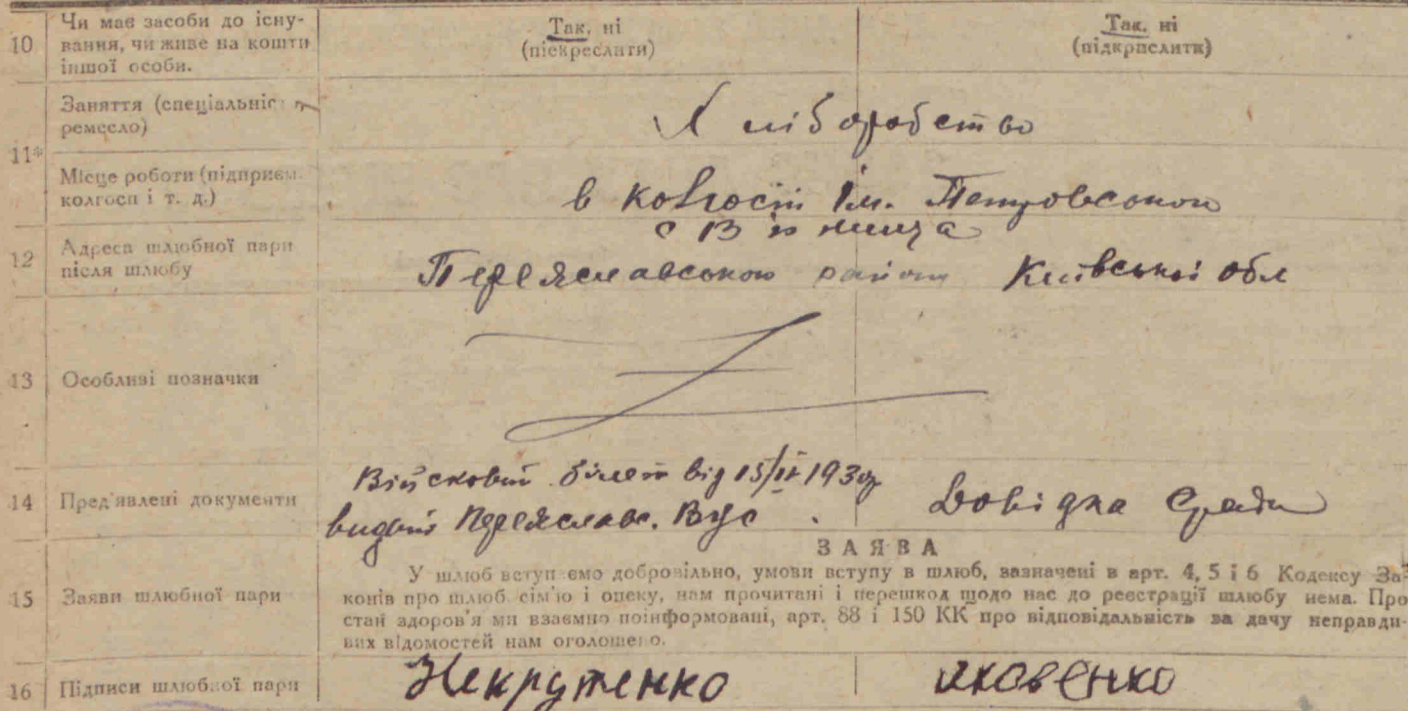 10 Чи має засоби до існу-
вання, чи живе на кошти
іншої особи.
Так, ні
(піекреслати)
Так, ні
(підкрпслити)
11* Заняття (спеціальніс
ремесло)
Хліборобство
Місце роботи (підприєм.
колгосп і т. д.)
в колгоспі Ім. Петровського
12 Адреса шлюбної пари
після шлюбу
с
Переяславського району Київської обл
13 Особливі позначки
14 Пред'явлені документи
Військовий білет від 15/IV 193
видан Переяславс. Вус.
Довідка С/ради
15 Заяви шлюбної пари
ЗАЯВА
У шлюб вступ ємо добровільно, умови вступу в шлюб, вазначені в арт. 4, 5 і 6 Кодексу За-
конів про шлюб, сім'ю і опеку, нам прочитані і перешкод щодо нас до реєстрації шлюбу нема. Про
стан здоров'я ми взаємно поінформовані, арт. 88 і 150 КК про відповідальність за дачу неправди-
вих відомостей нам оголошено.
16 Підписи шлюбної пари
Некрутенко
Яковенко